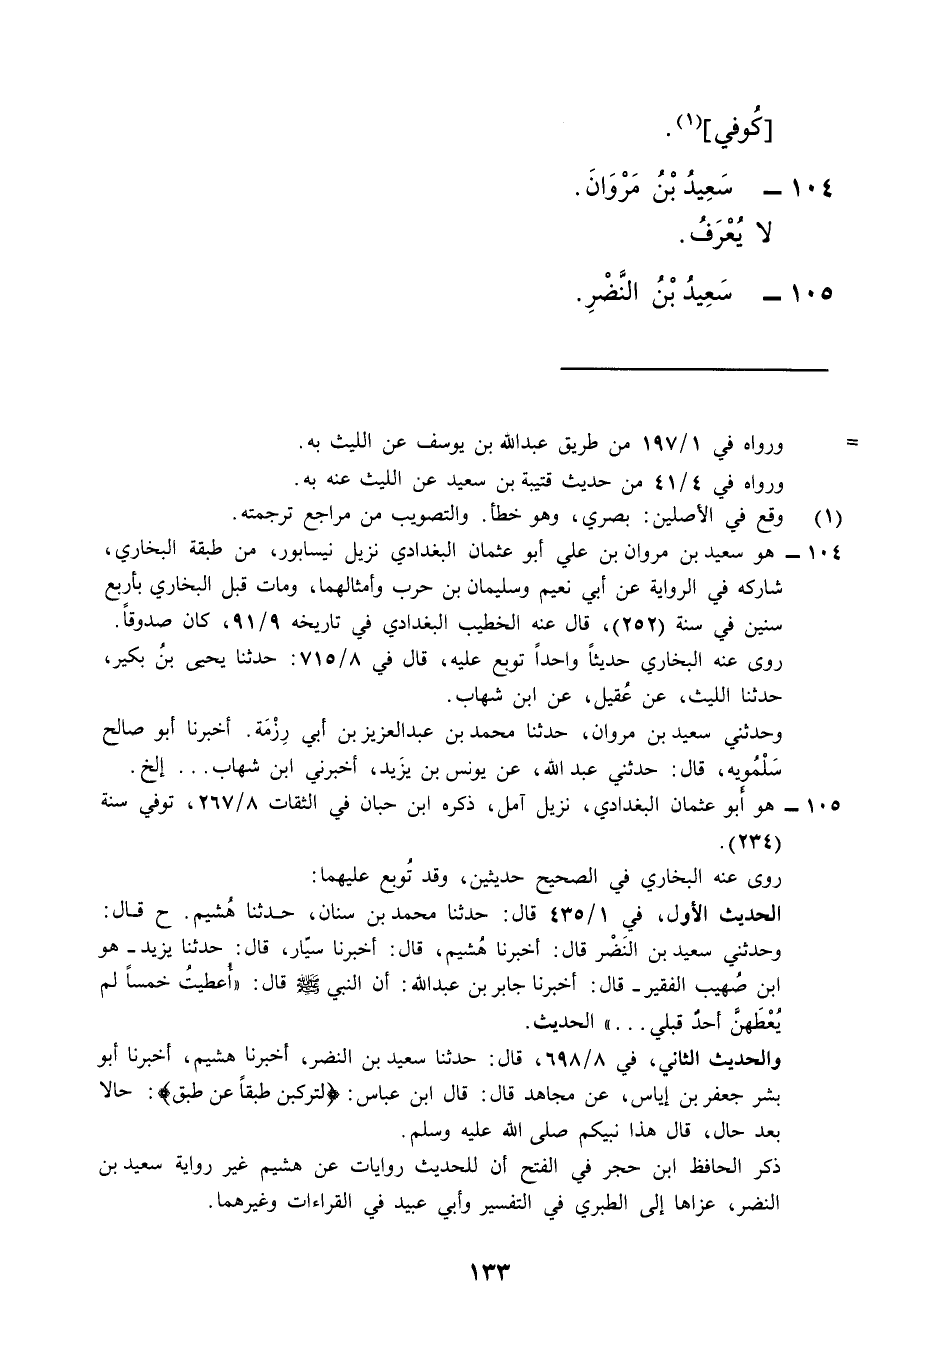 [كُوفي]<sup>(١)</sup>.
١٠٤ ـ سَعِيدُ بْنُ مَرْوَانَ.
لا يُعْرَفُ.
١٠٥ ـ سَعِيدُ بْنُ النَّضْرِ.
= ورواه في ١٩٧/١ من طريق عبدالله بن يوسف عن الليث به.
ورواه في ٤١/٤ من حديث قتيبة بن سعيد عن الليث عنه به.
(١) وقع في الأصلين: بصري، وهو خطأ. والتصويب من مراجع ترجمته.
١٠٤ ـ هو سعيد بن مروان بن علي أبو عثمان البغدادي نزيل نيسابور، من طبقة البخاري،
شاركه في الرواية عن أبي نعيم وسليمان بن حرب وأمثالهما، ومات قبل البخاري بأربع
سنين في سنة (٢٥٢)، قال عنه الخطيب البغدادي في تاريخه ٩١/٩، كان صدوقاً.
روى عنه البخاري حديثاً واحداً توبع عليه، قال في ٧١٥/٨: حدثنا يحيى بنُ بكير،
حدثنا الليث، عن عُقيل، عن ابن شهاب.
وحدثني سعيد بن مروان، حدثنا محمد بن عبدالعزيز بن أبي رِزْمَة. أخبرنا أبو صالح
سَلْمُويه، قال: حدثني عبد الله، عن يونس بن يزَيد، أخبرني ابن شهاب... إلخ.
١٠٥ ـ هو أبو عثمان البغدادي، نزيل آمل، ذكره ابن حبان في الثقات ٢٦٧/٨، توفي سنة
(٢٣٤).
روى عنه البخاري في الصحيح حديثين، وقد تُوبع عليهما:
الحديث الأول، في ٤٣٥/١ قال: حدثنا محمد بن سنان، حـدثنا هُشيم. ح قـال:
وحدثني سعيد بن النَضْر قال: أخبرنا هُشيم، قال: أخبرنا سيّار، قال: حدثنا يزيد ـ هو
ابن صُهيب الفقير ـ قال: أخبرنا جابر بن عبدالله: أن النبي ﷺ قال: «أُعطيتُ خمساً لم
يُعْطَهنَّ أحدٌ قبلي...» الحديث.
والحديث الثاني، في ٦٩٨/٨، قال: حدثنا سعيد بن النضر، أخبرنا هشيم، أخبرنا أبو
بشر جعفر بن إياس، عن مجاهد قال: قال ابن عباس: ﴿لتركبن طبقاً عن طبق﴾: حالا
بعد حال، قال هذا نبيكم صلى الله عليه وسلم.
ذكر الحافظ ابن حجر في الفتح أن للحديث روايات عن هشيم غير رواية سعيد بن
النضر، عزاها إلى الطبري في التفسير وأبي عبيد في القراءات وغيرهما.
١٣٣